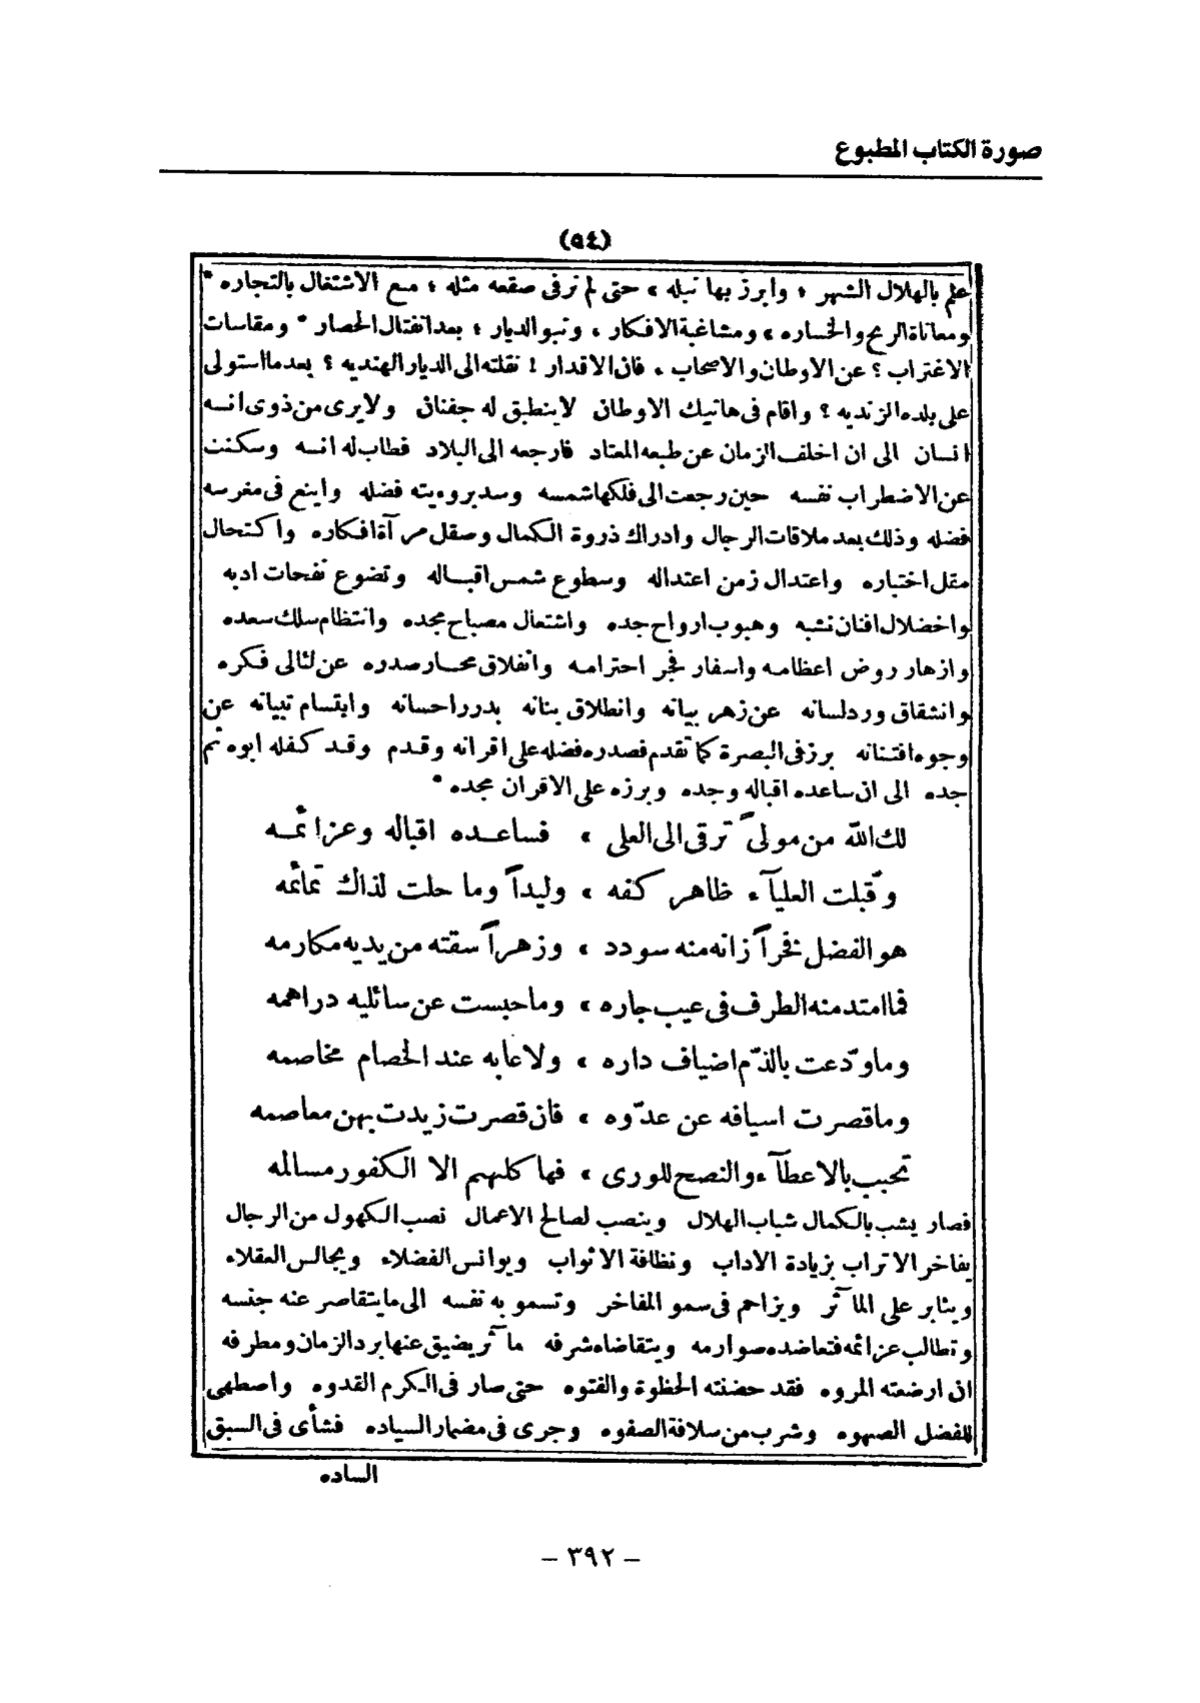 صورة الكتاب المطبوع
(٥٤)
علم بالهلال الشهر ؛ وابرز بها نبله ، حتى لم ترفى صقعه مثله ؛ مع الاشتغال بالتجاره *
ومعاناة الربح والخساره ، ومشاغبة الافكار ، ونبو الديار ؛ بعد انفتال الحصار * ومقاسات
الاغتراب ؟ عن الاوطان والاصحاب ، فان الاقدار ! نقلته الى الديار الهنديه ؟ بعد ما استولى
على بلده الزنديه ؟ واقام فى هاتيك الاوطان لا ينطبق له جفنان ولا يرى من ذوى انسه
انسان الى ان اخلف الزمان عن طبعه المعتاد فارجعه الى البلاد فطاب له انسه وسكنت
عن الاضطراب نفسه حين رجعت الى فلكها شمسه وسد برويته فضله واينع فى مغرسه
فضله وذلك بعد ملاقات الرجال وادراك ذروة الكمال وصقل مرآة افكاره واكتحال
مقل اختباره واعتدال زمن اعتداله وسطوع شمس اقباله وتضوع نفحات ادبه
واخضلال افنان نشبه وهبوب ارواح جده واشتعال مصباح مجده وانتظام سلك سعده
وازهار روض اعظامه واسفار فجر احترامه وانفلاق محار صدره عن لئالى فكره
وانشقاق ورد لسانه عن زهر بيانه وانطلاق بنانه بدرر احسانه وابتسام تبيانه عن
وجوه افتنانه برز فى البصرة كما تقدم فصدره فضله على اقرانه وقدم وقد كفله ابوه ثم
جده الى ان ساعده اقباله وجده وبرزه على الاقران مجده *
لك الله من مولىً ترقى الى العلى ، فساعده اقباله وعزائمه
وقبلت العليآء ظاهر كفه ، وليداً وما حلت لذاك تمائمه
هو الفضل فخراً زانه منه سودد ، وزهراً سقته من يديه مكارمه
فما امتد منه الطرف فى عيب جاره ، وما حبست عن سائليه دراهمه
وما ودّعت بالذمّ اضياف داره ، ولا عابه عند الخصام مخاصمه
وما قصرت اسيافه عن عدوّه ، فان قصرت زيدت بهن معاصمه
تحبب بالاعطآء والنصح للورى ، فها كلهم الا الكفور مسالمه
فصار يشب بالكمال شباب الهلال وينصب لصالح الاعمال نصب الكهول من الرجال
يفاخر الاتراب بزيادة الاداب ونظافة الاثواب ويوانس الفضلاء ويجالس العقلاء
ويثابر على المآثر ويزاحم فى سمو المفاخر وتسمو به نفسه الى ما يتقاصر عنه جنسه
وتطالب عزائمه فتعاضده صوارمه ويتقاضاه شرفه مآثر يضيق عنها برد الزمان ومطرفه
ان ارضعته المروه فقد حضنته الحظوة والفتوه حتى صار فى الكرم القدوه واصطهى
للفضل الصهوه وشرب من سلافة الصفوه وجرى فى مضمار السياده فشأى فى السبق
الساده
– ٣٩٢ –